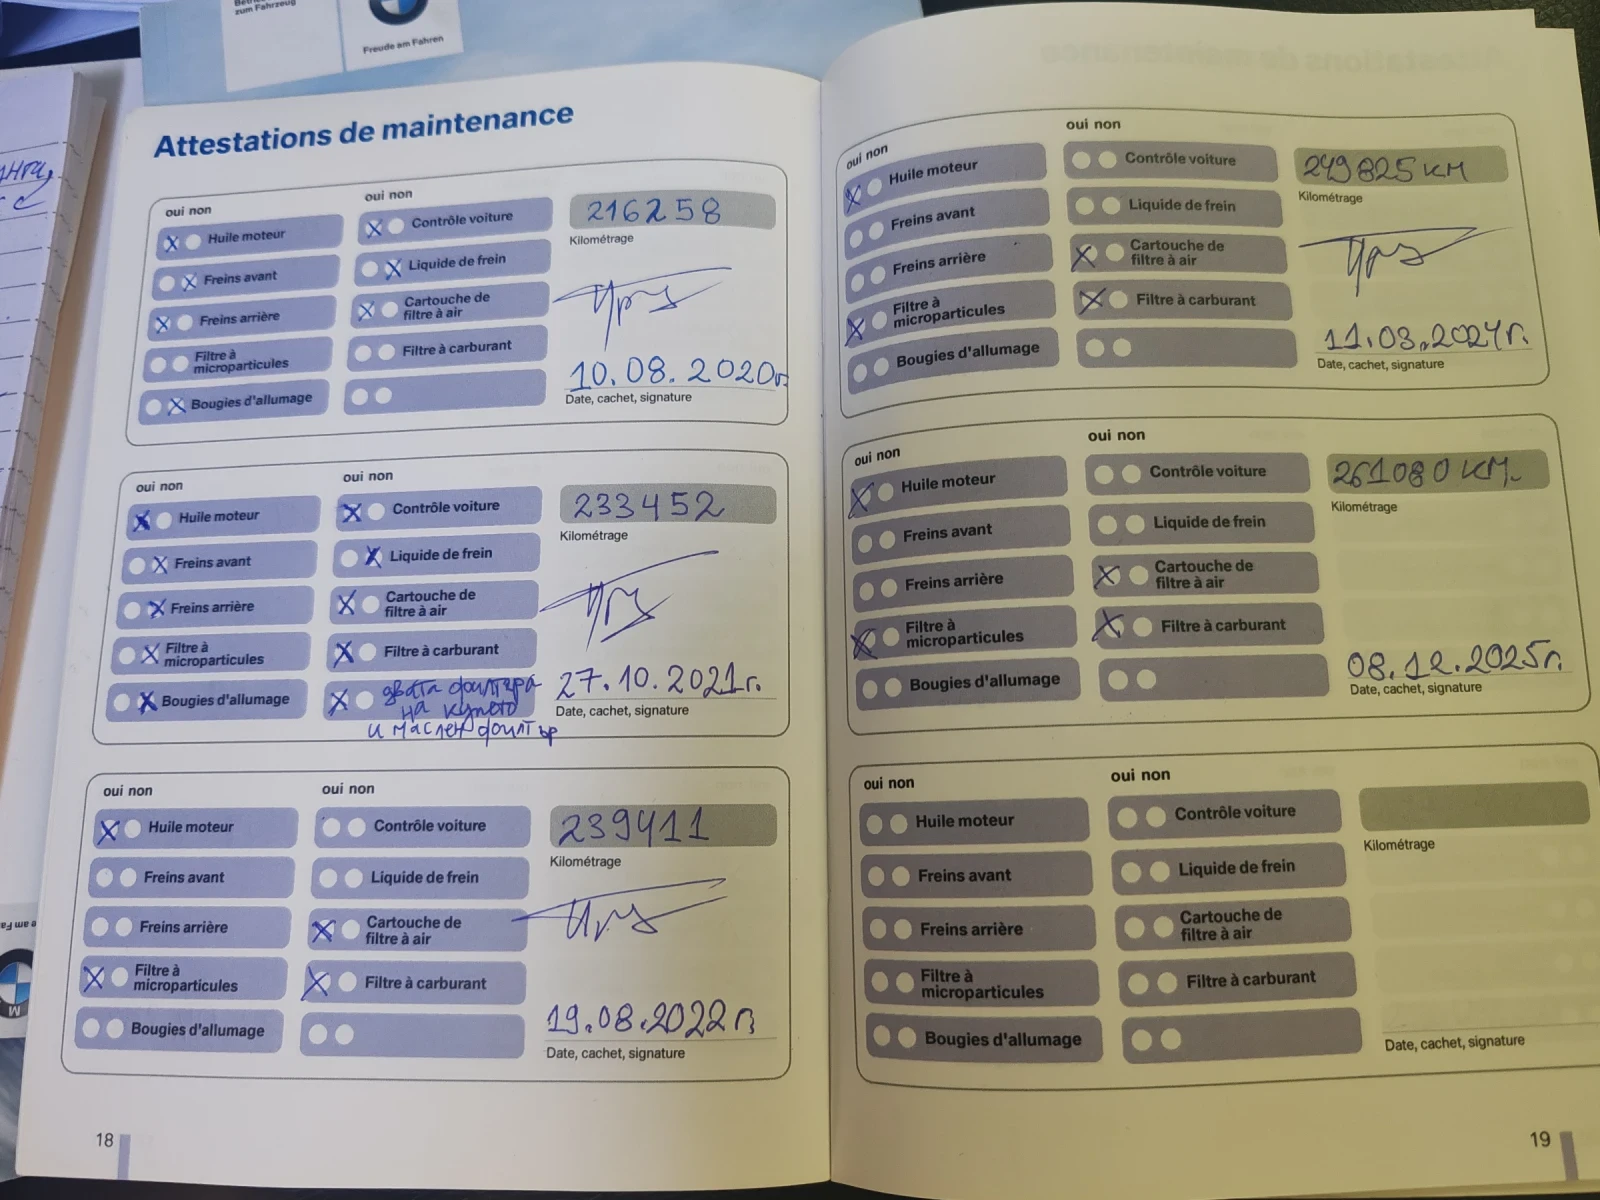 zum Fahrzeug
Freude am Fahren
Attestations de maintenance
oui non
oui non
Huile moteur
Contrôle voiture
216258
Kilométrage
Freins avant
Liquide de frein
Freins arrière
Cartouche de
filtre à air
Filtre à
microparticules
Filtre à carburant
Bougies d'allumage
10.08.2020г.
Date, cachet, signature
oui non
oui non
Huile moteur
Contrôle voiture
233452
Kilométrage
Freins avant
Liquide de frein
Freins arrière
Cartouche de
filtre à air
Filtre à
microparticules
Filtre à carburant
Bougies d'allumage
двата филтъра
на купето
и маслен филтър
27.10.2021г.
Date, cachet, signature
oui non
oui non
Huile moteur
Contrôle voiture
239411
Kilométrage
Freins avant
Liquide de frein
Freins arrière
Cartouche de
filtre à air
Filtre à
microparticules
Filtre à carburant
Bougies d'allumage
19.08.2022г.
Date, cachet, signature
18
oui non
oui non
Huile moteur
Contrôle voiture
249825 км
Kilométrage
Freins avant
Liquide de frein
Freins arrière
Cartouche de
filtre à air
Filtre à
microparticules
Filtre à carburant
Bougies d'allumage
11.03.2024г.
Date, cachet, signature
oui non
oui non
Huile moteur
Contrôle voiture
261080 км.
Kilométrage
Freins avant
Liquide de frein
Freins arrière
Cartouche de
filtre à air
Filtre à
microparticules
Filtre à carburant
Bougies d'allumage
08.12.2025г.
Date, cachet, signature
oui non
oui non
Huile moteur
Contrôle voiture
Kilométrage
Freins avant
Liquide de frein
Freins arrière
Cartouche de
filtre à air
Filtre à
microparticules
Filtre à carburant
Bougies d'allumage
Date, cachet, signature
19